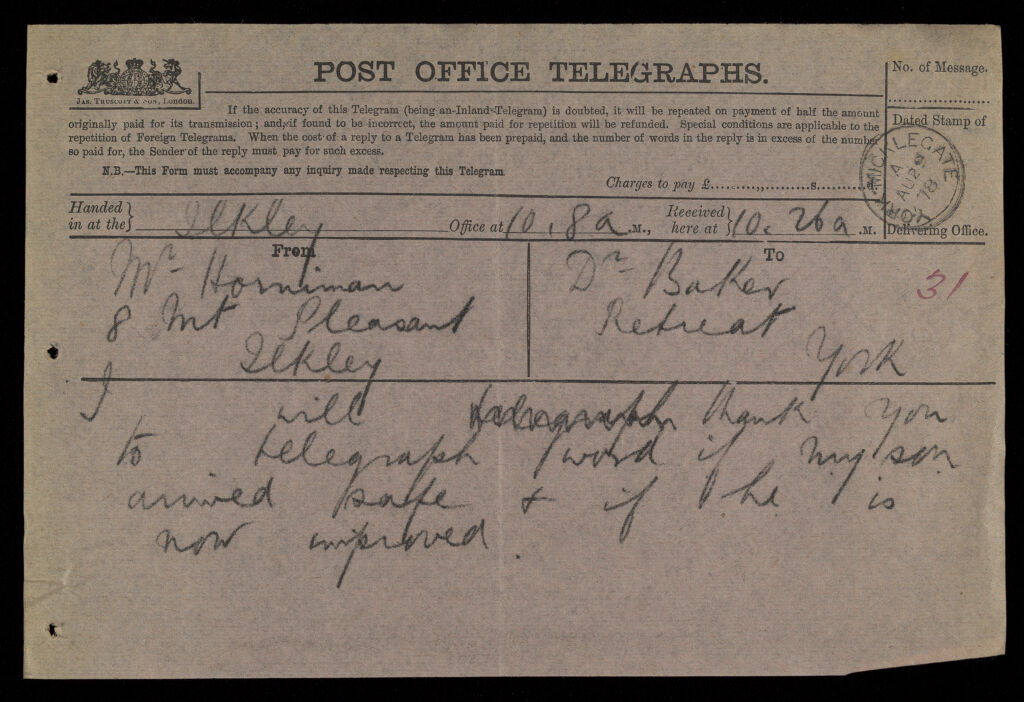 POST OFFICE TELEGRAPHS.
JAS. TRUSCOTT & SON, London.
If the accuracy of this Telegram (being an Inland Telegram) is doubted, it will be repeated on payment of half the amount
originally paid for its transmission; and, if found to be incorrect, the amount paid for repetition will be refunded. Special conditions are applicable to the
repetition of Foreign Telegrams. When the cost of a reply to a Telegram has been prepaid, and the number of words in the reply is in excess of the number
so paid for, the Sender of the reply must pay for such excess.
N.B.—This Form must accompany any inquiry made respecting this Telegram
Charges to pay £ s. d.
No. of Message.
Dated Stamp of
MICKLEGATE
A
AU 2
78
YORK
Delivering Office.
Handed in at the } Ilkley Office at 10.8 a .M., Received here at } 10.26 a .M.
From
Mr Horniman
8 Mt Pleasant
Ilkley
To
Dr Baker
Retreat
York
31
I will telegraph thank you
to telegraph word if my son
arrived safe & if he is
now improved.